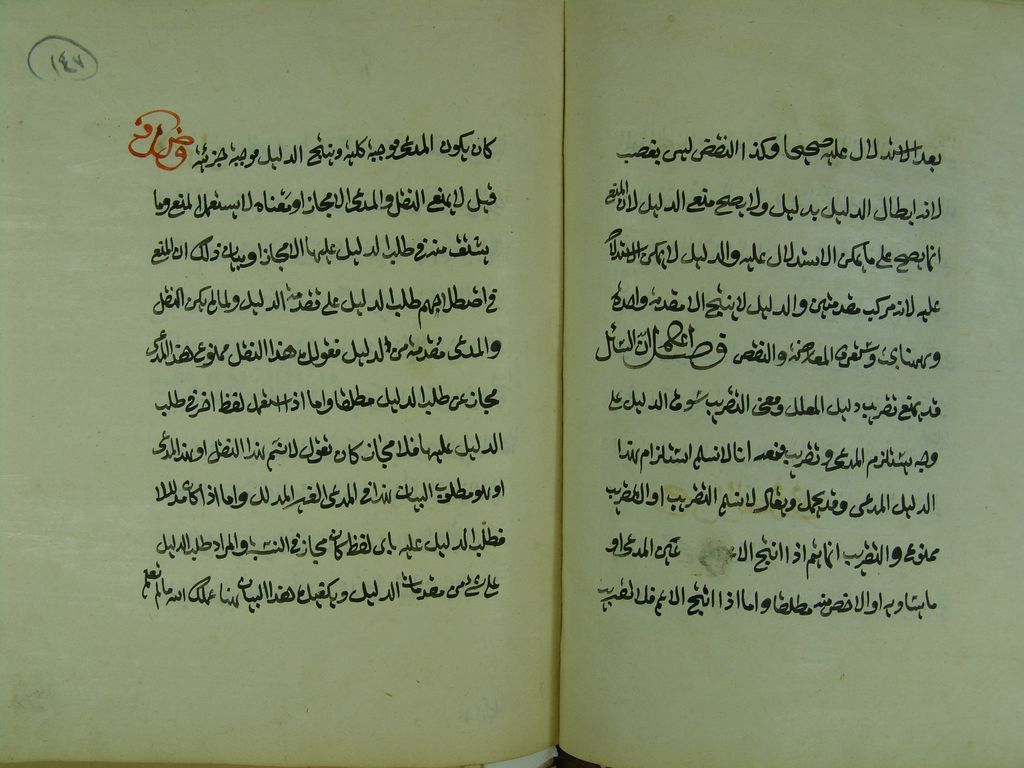 بعد الاستدلال عليه صحيحا وكذا النقض ليس بغصب
لانه ابطال الدليل بدليل ولا يصح منع الدليل لان المنع
انما يصح على ما يمكن الاستدلال عليه والدليل لا يمكن الاستدلال
عليه لانه مركب مقدمتين والدليل لا ينتج الا مقدمة واحدة
وستعرف المعارضة والنقض فصل اعلم ان السائل
قد يمنع تقريب دليل المعلل ومعنى التقريب سوق الدليل على
وجه يستلزم المدعى وتقريب منعه انا لا نسلم استلزام هذا
الدليل المدعى وقد يجمل ويقال لا نسلم التقريب او التقريب
ممنوع والتقريب انما يتم اذا انتج الدليل عين المدعى او
ما يساويه او الاخص منه مطلقا واما اذا انتج الاعم فلا تقريب
١٤٧
كان يكون المدعى موجبة كلية وينتج الدليل موجبة جزئية
قيل لا يمنع النقل والمدعى الا مجازا ومعناه لا يستعمل المنع وما
يشتق منه في طلب الدليل عليها الا مجازا وبيان ذلك ان المنع
في اصطلاحهم طلب الدليل على مقدمة الدليل ولما لم يكن النقل
والمدعى مقدمة من الدليل فقولك هذا النقل ممنوع هذا المدعى
مجاز عن طلب الدليل مطلقا واما اذا استعمل لفظ اخر في طلب
الدليل عليها فلا مجاز كان تقول لا نسلم هذا النقل او هذا المدعى
او هو مطلوب البيان هذا في المدعى الغير المدلل واما اذا كان مدللا
فطلب الدليل عليه باى لفظ كان مجاز في النسبة والمراد طلب الدليل
على شئ من مقدمات الدليل ويكفيك هذا البيان هنا علمك الله ما لم تعلم